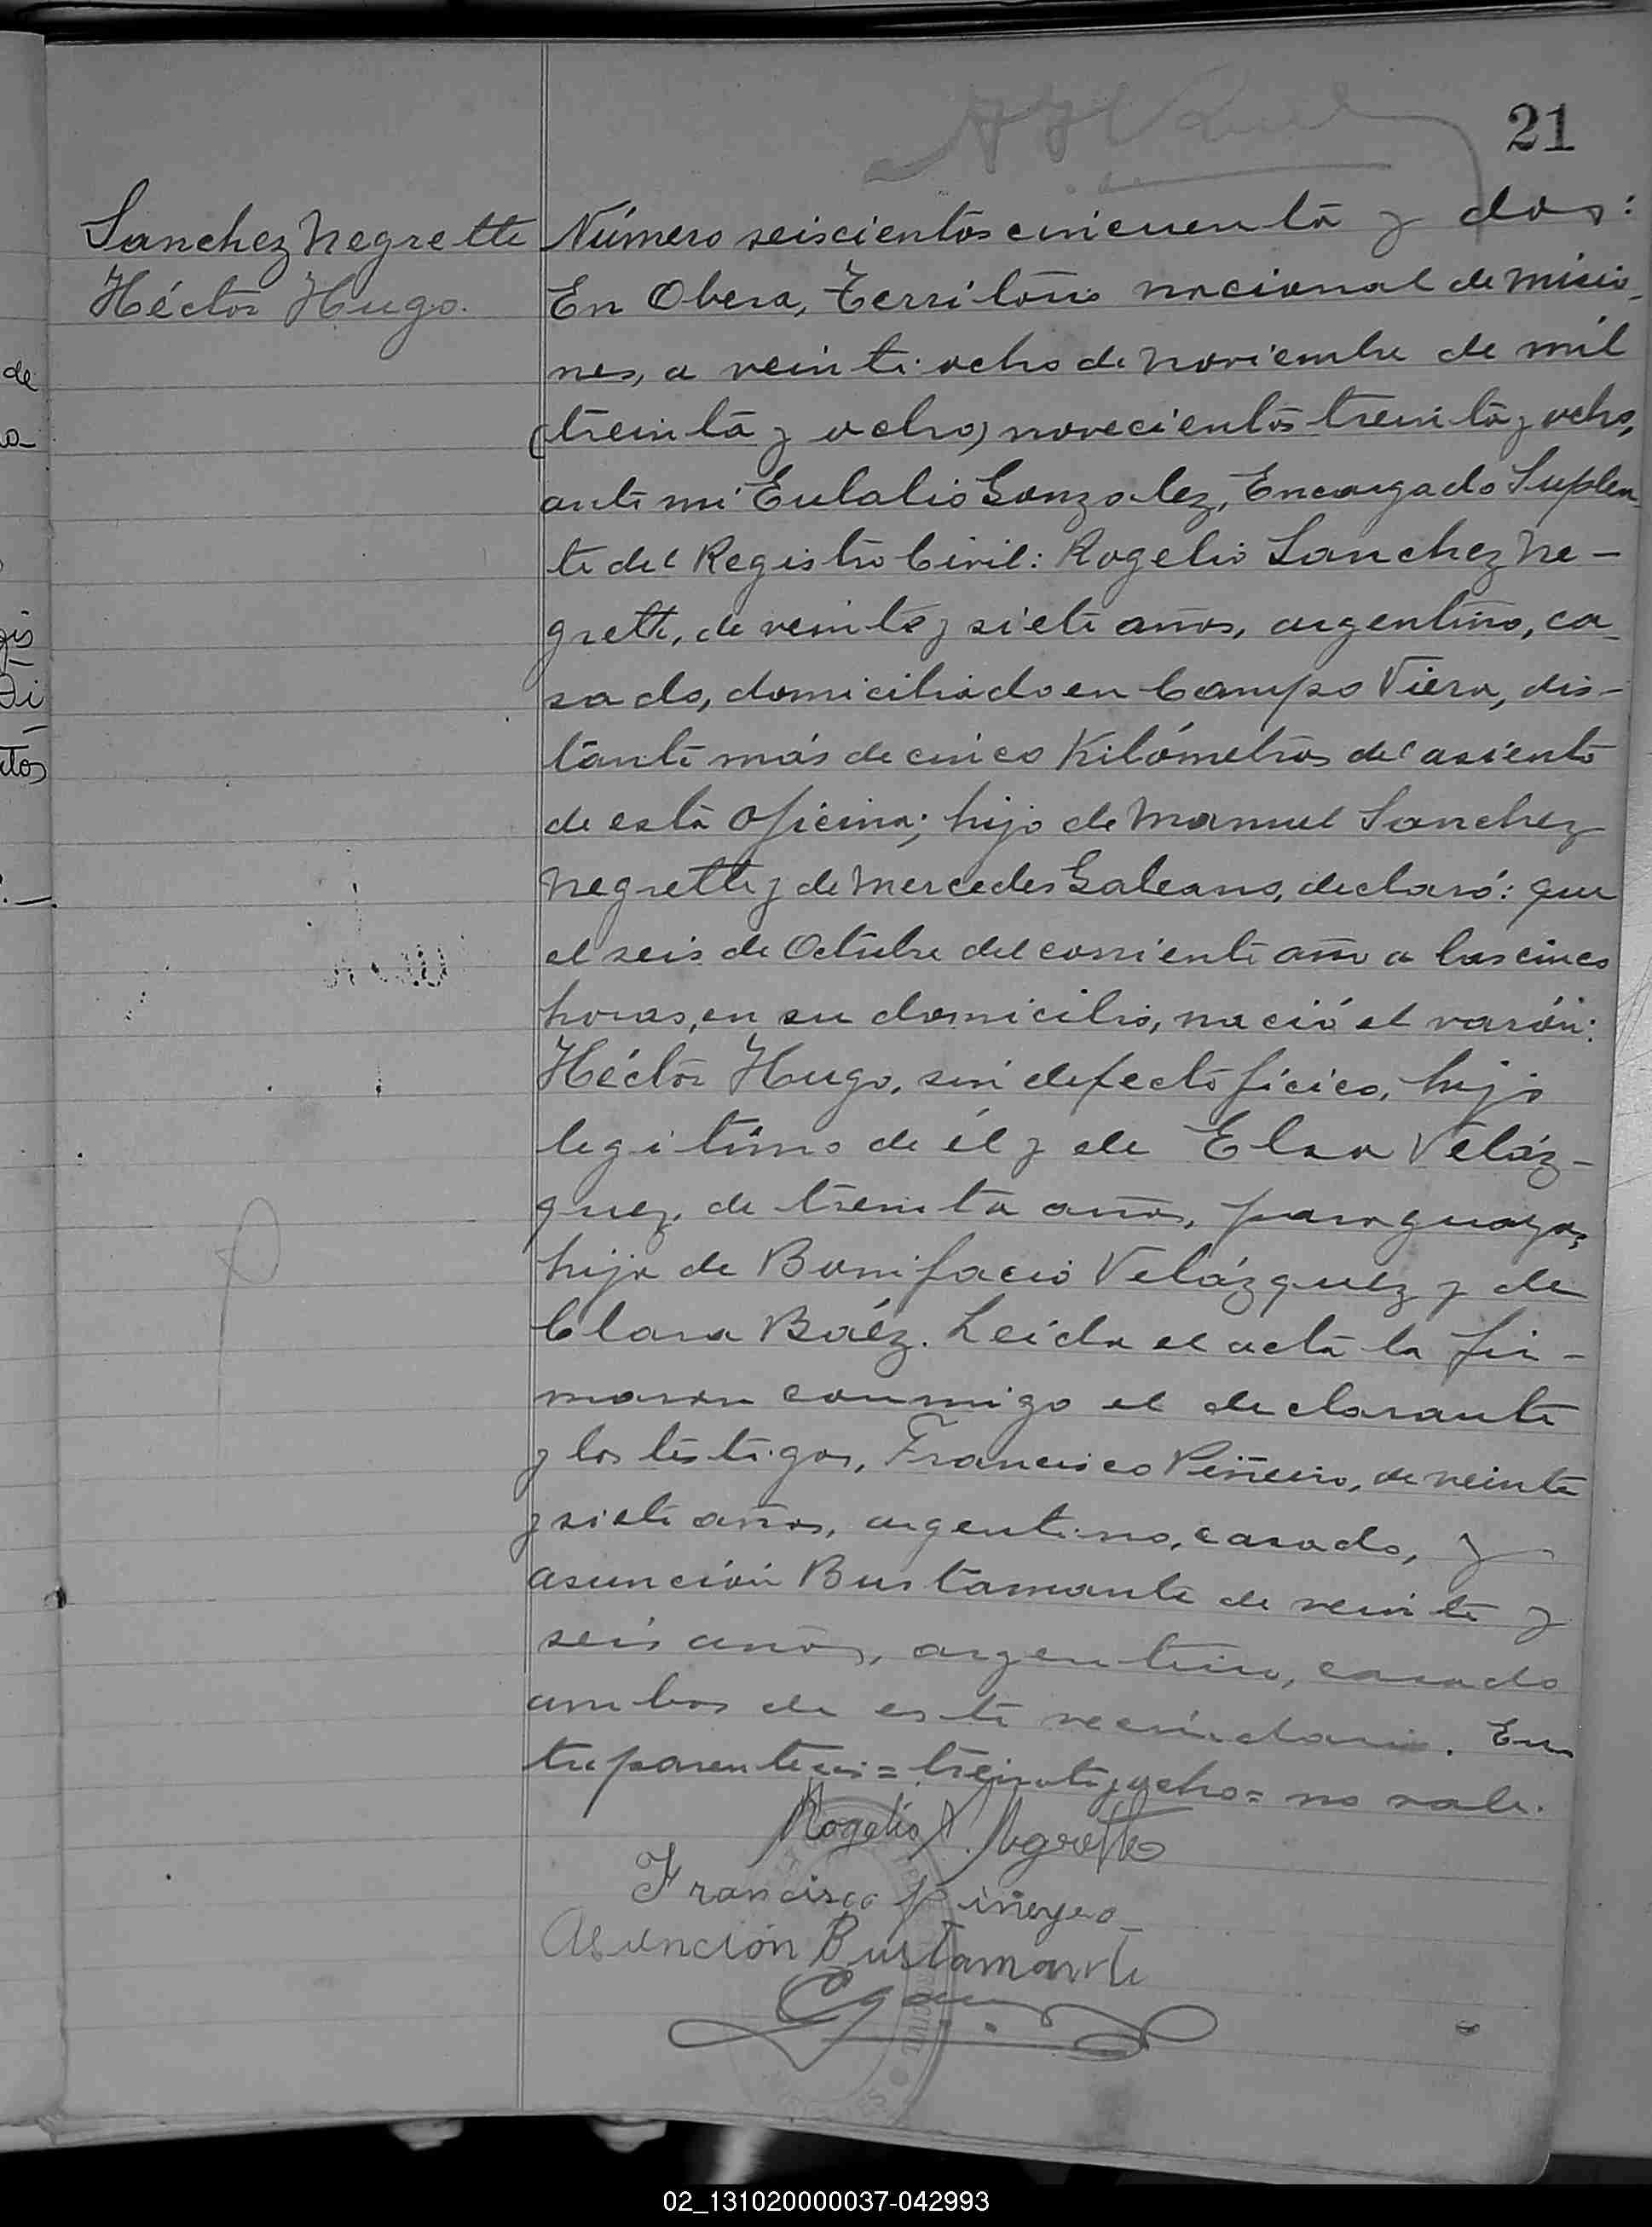 21
Sanchez Negrette
Héctor Hugo.
Número seiscientos cincuenta y dos:
En Obera, Territorio nacional de Misio-
nes, a veinti ocho de Noviembre de mil
(treinta y ocho) novecientos treinta y ocho,
ante mi Eulalio Gonzalez, Encargado Suplen-
te del Registro Civil: Rogelio Sanchez Ne-
grette, de veinte y siete años, argentino, ca-
sado, domiciliado en Campo Viera, dis-
tante más de cinco Kilómetros del asiento
de esta Oficina; hijo de Manuel Sanchez
Negrette y de Mercedes Galeano, declaró: que
el seis de Octubre del corriente año a las cinco
horas, en su domicilio, nació el varón:
Héctor Hugo, sin defecto ficico, hijo
legitimo de él y de Elsa Veláz-
quez, de treinta años, paraguaya,
hija de Bonifacio Velázquez y de
Clara Baéz. Leida el acta la fir-
maron conmigo el declarante
y los testigos, Francisco Piñeiro, de veinte
y siete años, argentino, casado, y
Asunción Bustamante de veinte y
seis años, argentino, casado
ambos de este vecindario. En-
tre parentesis = treinta y ocho = no vale.
Rogelio S. Negrette
Francisco Piñeyro
Asunción Bustamante
de
gis
Di
tos
02_131020000037-042993